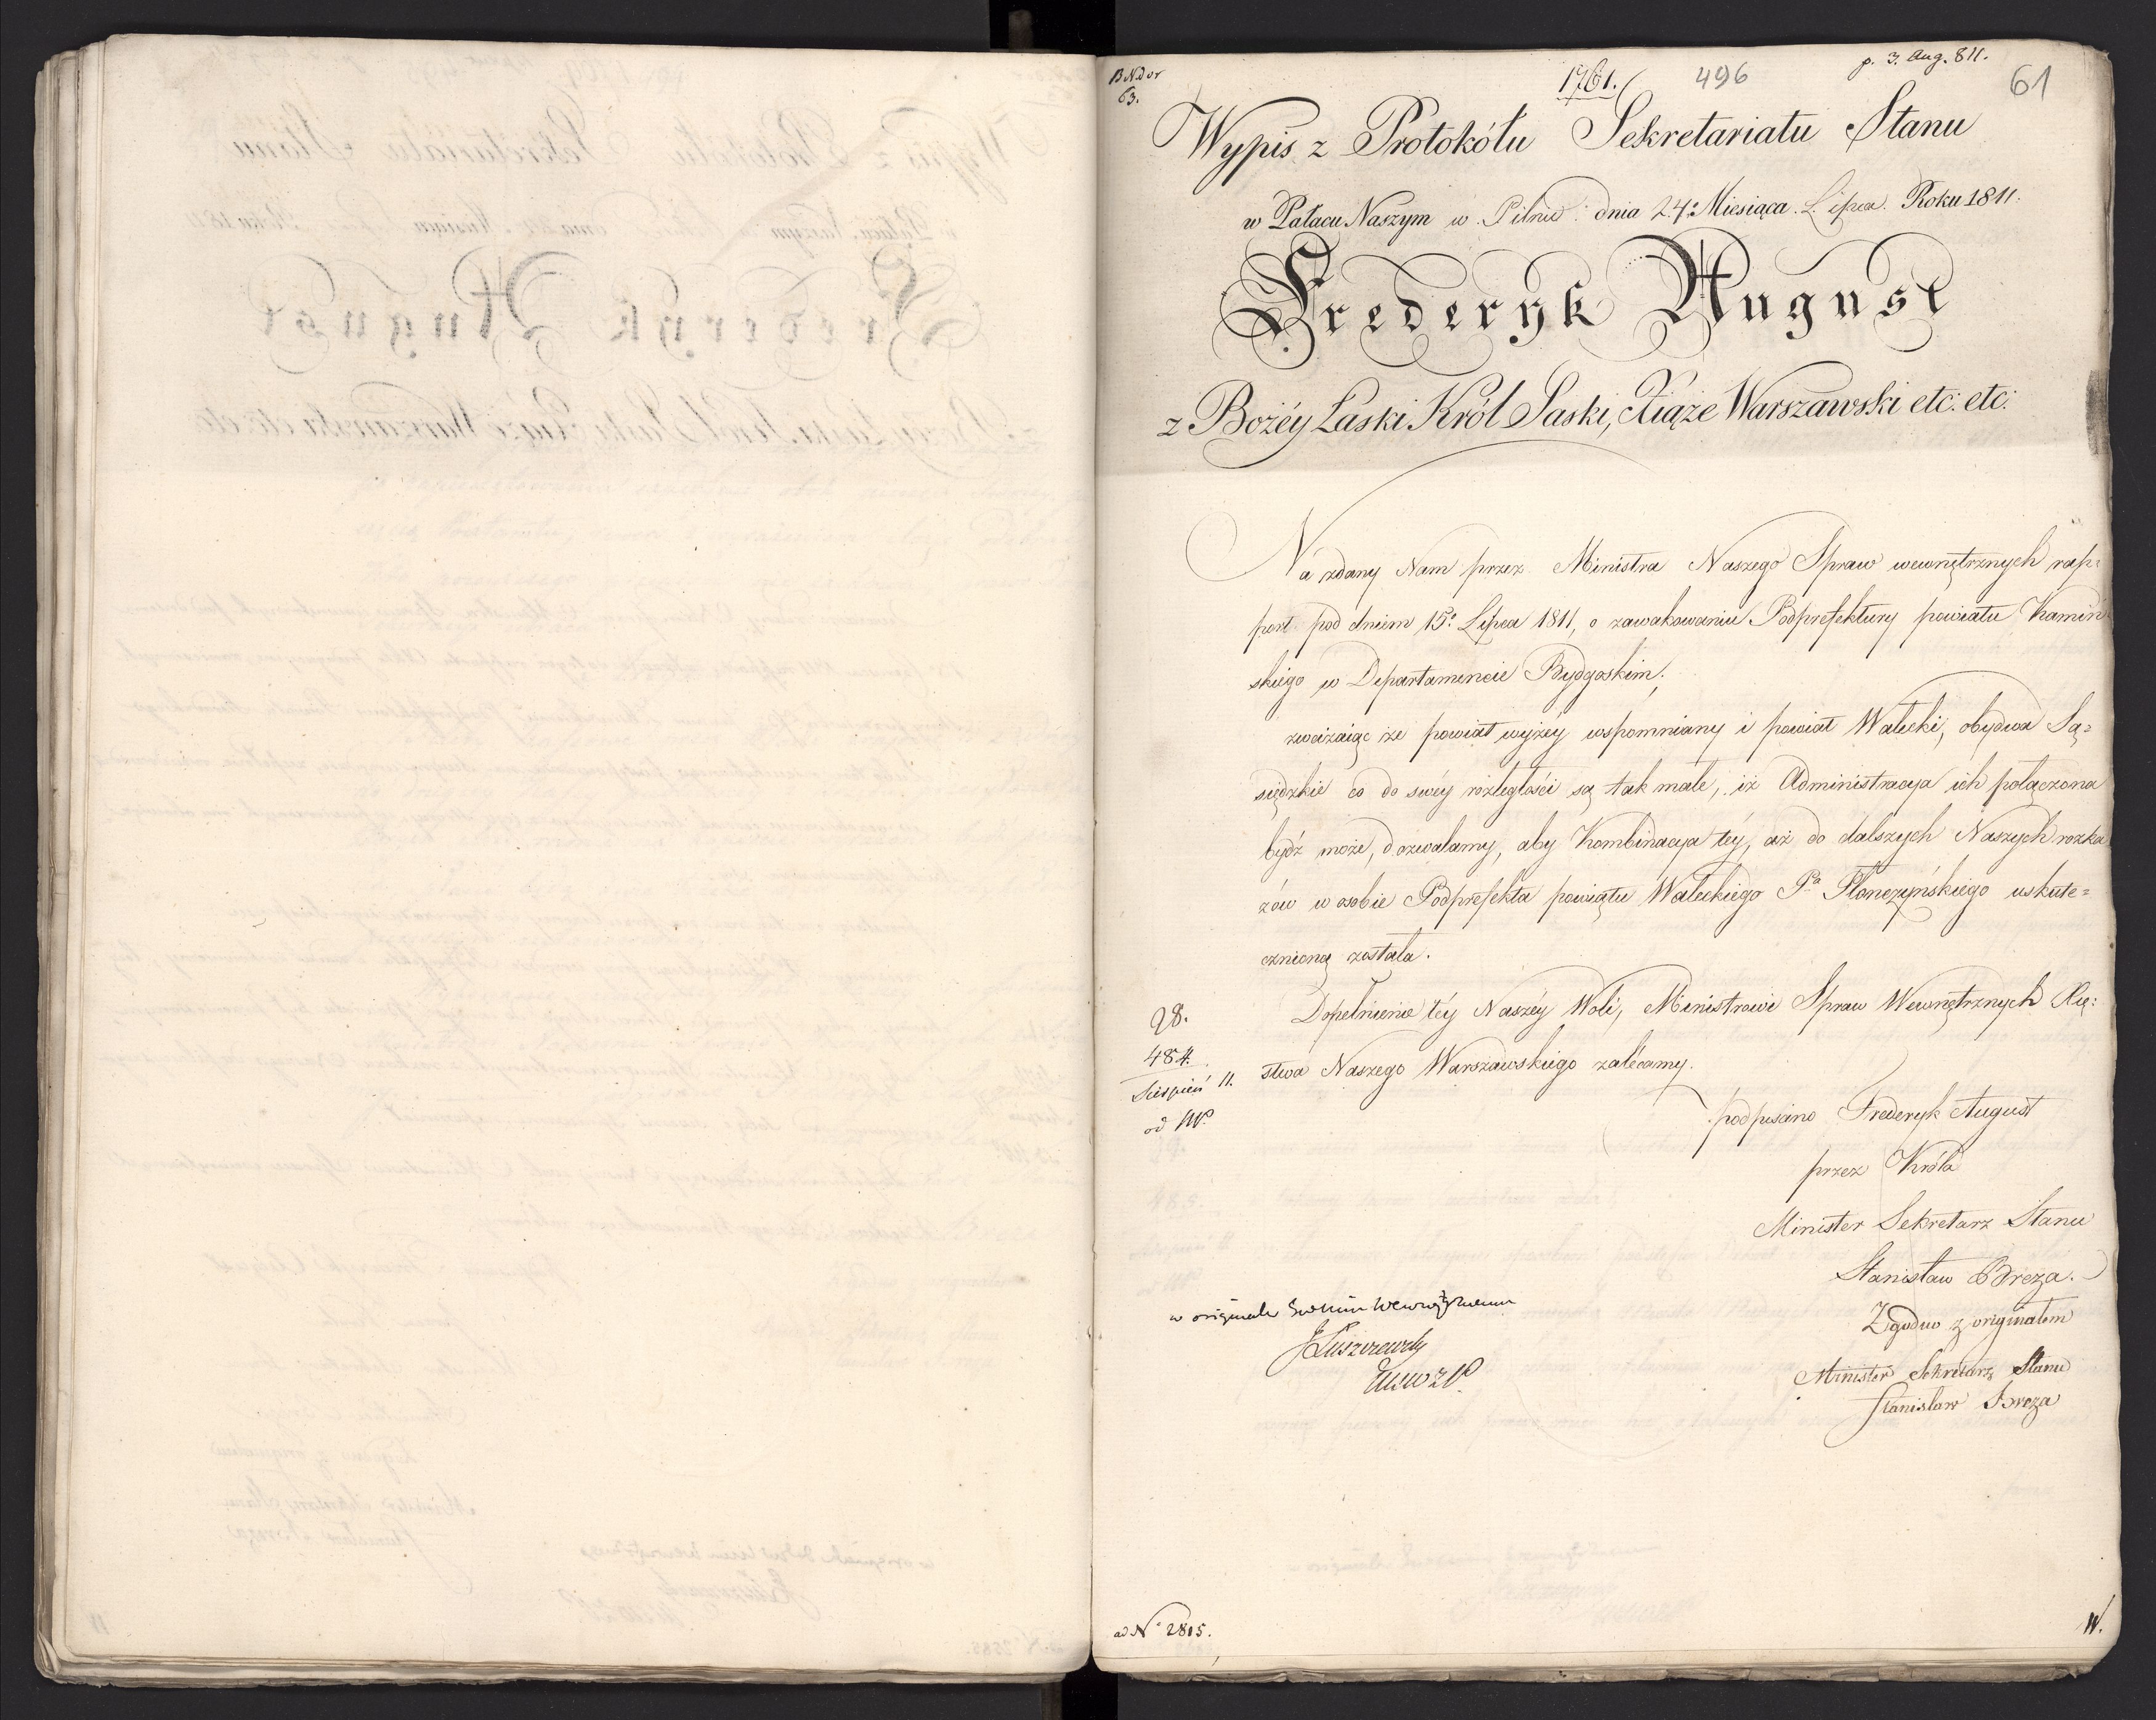 B N dor
63.
1761.
496
p. 3. Aug. 811.
61
Wypis z Protokółu Sekretariatu Stanu
w Pałacu Naszym w Pilnic: dnia 24: Miesiąca Lipca Roku 1811.
Frederyk August
z Bożéy Łaski Król Saski, Xiąże Warszawski etc: etc:
Na zdany Nam przez Ministra Naszego Spraw wewnętrznych rap=
port pod dniem 15: Lipca 1811, o zawakowaniu Podprefektury powiatu Kamiń
skiego w Departamencie Bydgoskim;
zważaiąc że powiat wyżéy wspomniany i powiat Wałecki, obydwa Są=
siędzkie co do swéy rozległości są tak małe, iż Administracya ich połączona
bydź może, dozwalamy, aby Kombinacya téy, aż do dalszych Naszych rozka
zów w osobie Podprefekta powiątu Wałeckiego Pa Płonczyńskiego uskute=
cznioną została.
Dopełnienie téy Naszéy Woli, Ministrowi Spraw Wewnętrznych Xię:
stwa Naszego Warszawskiego zalécamy.
28.
484.
Sierpień 11.
od
podpisano Frederyk August
przez Króla
Minister Sekretarz Stanu
Stanisław Breza.
Zgodno z originałem
Minister Sekretarz Stanu
Stanisław Breza
w originale
JŁuszczewski
ad N° 2815.
W.